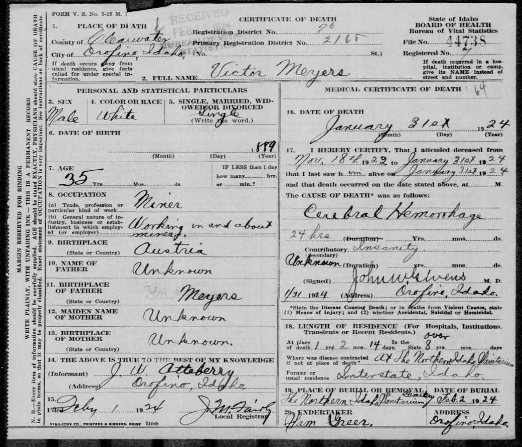 FORM V. S. No. 5-25 M.
CERTIFICATE OF DEATH
State of Idaho
BOARD OF HEALTH
Bureau of Vital Statistics
1. PLACE OF DEATH
RECEIVED
County of Clearwater
Registration District No. 96
City of Orofino, Idaho
Primary Registration District No. 2168
File No. 44738
(No. St.) Registered No.
If death occurs away from usual residence, give facts called for under special information.
If death occurred in a hospital, institution or camp, give its NAME instead of street and number.
2. FULL NAME Victor Meyers
PERSONAL AND STATISTICAL PARTICULARS
3. SEX
Male
4. COLOR OR RACE
White
5. SINGLE, MARRIED, WIDOWED OR DIVORCED
Single
(Write the word.)
6. DATE OF BIRTH
1889
(Month) (Day) (Year)
7. AGE
35 Yrs. Mos. ds.
IF LESS than 1 day
how many hrs.
or min.?
8. OCCUPATION
(a) Trade, profession or particular kind of work
Miner
(b) General nature of industry, business or establishment in which employed (or employer)
Working in and about mines.
9. BIRTHPLACE
(State or Country)
Austria
10. NAME OF FATHER
Unknown
11. BIRTHPLACE OF FATHER
(State or Country)
Meyers
12. MAIDEN NAME OF MOTHER
Unknown
13. BIRTHPLACE OF MOTHER
(State or Country)
Unknown.
14. THE ABOVE IS TRUE TO THE BEST OF MY KNOWLEDGE
(Informant) J. W. Atteberry
(Address) Orofino, Idaho
15.
Feby 1 1924
Local Registrar
MEDICAL CERTIFICATE OF DEATH
16. DATE OF DEATH
January 31st 1924
(Month) (Day) (Year)
17. I HEREBY CERTIFY, That I attended deceased from
Nov. 18th 1922 to January 31st 1924
that I last saw him alive on January 31st 1924
and that death occurred on the date stated above, at M.
THE CAUSE OF DEATH* was as follows:
Cerebral Hemorrhage
24 hrs (Duration) Yrs. mos. ds.
Contributory Insanity
(Secondary)
Unknown (Duration) Yrs. mos. ds.
(Signed) John W. Givens M. D.
1/31 1924 (Address) Orofino, Idaho.
*State the Disease Causing Death; or in deaths from Violent Causes, state (1) Means of Injury; and (2) whether Accidental, Suicidal or Homicidal.
18. LENGTH OF RESIDENCE (For Hospitals, Institutions, Transients or Recent Residents.)
At place of death 1 yrs. 2 mos. 14 days.
In the State over 3 yrs. mos. ds.
Where was disease contracted if not at place of death? At The Northern Idaho Sanitarium
Former or usual residence Interstate, Idaho
19. PLACE OF BURIAL OR REMOVAL
The Northern Idaho Sanitarium Cemetery
DATE OF BURIAL
Feb. 2 1924
20. UNDERTAKER
ADDRESS
Orofino Idaho.
MARGIN RESERVED FOR BINDING
WRITE PLAINLY, WITH UNFADING INK—THIS IS A PERMANENT RECORD